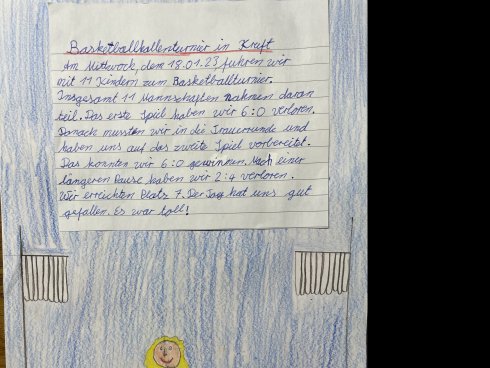 Basketballhallenturnier in Kreft
Am Mittwoch, dem 18.01.23, fuhren wir
mit 11 Kindern zum Basketballturnier.
Insgesamt 11 Mannschaften nahmen daran
teil. Das erste Spiel haben wir 6:0 verloren.
Danach mussten wir in die Trauerrunde und
haben uns auf das zweite Spiel vorbereitet.
Das konnten wir 6:0 gewinnen. Nach einer
längeren Pause haben wir 2:4 verloren.
Wir erreichten Platz 7. Der Tag hat uns gut
gefallen. Es war toll!